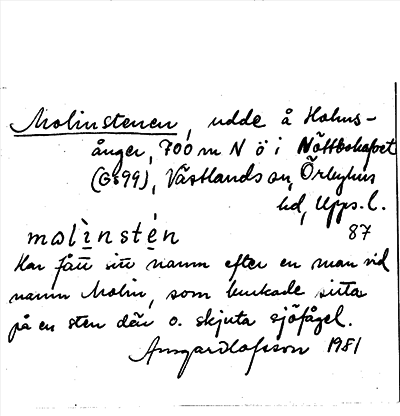 Molinstenen, udde å Holms-
ånger, 700 m N ö i Nöttbohafvet
(Gs99), Västlands sn, Örbyhus
hd, Upps. l.
87
molinstén
Har fått sitt namn efter en man vid
namn Molin, som brukade sitta
på en sten där o. skjuta sjöfågel.
Amgard Lofsson 1981